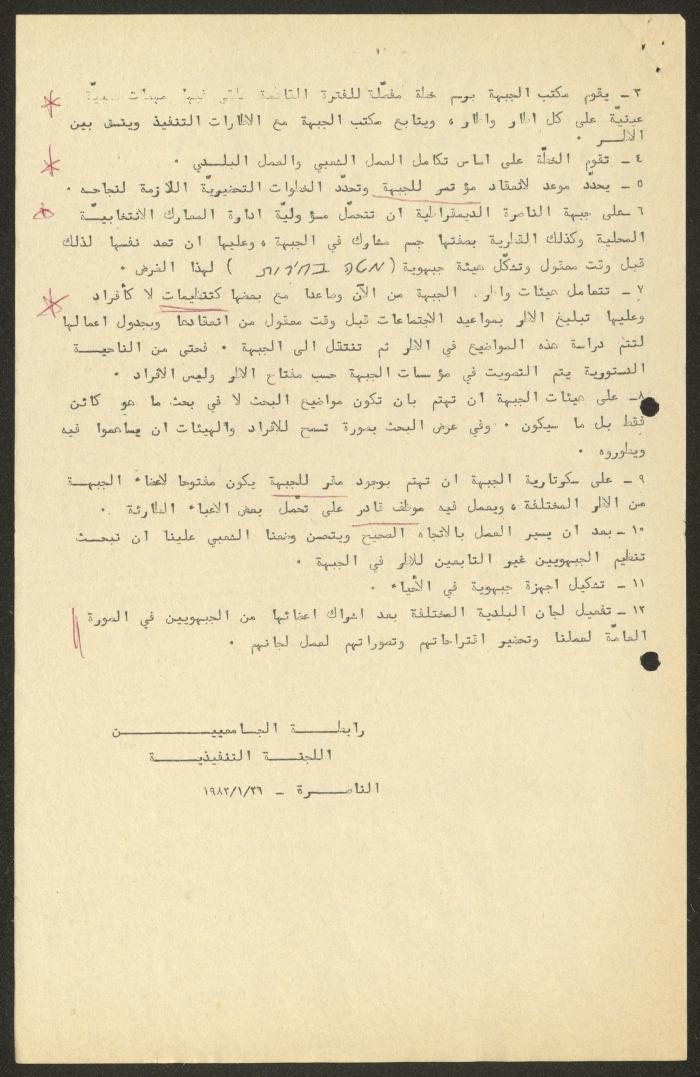 ٣ـ يقوم مكتب الجبهة برسم خطة مفصّلة للفترة القادمة
عينيّة على كل اطار واطار ، ويتابع مكتب الجبهة مع الاطارات التنفيذ وينسق بين
الاطـــر ٠
٤ـ تقوم الخطّة على اساس تكامل العمل الشعبي والعمل البلـدي ٠
٥ـ يحدّد موعد لانعقاد مؤتمر للجبهة وتحدّد الخطوات التحضيريّة اللازمة لنجاحه ٠
٦ـ على جبهة الناصرة الديمقراطية ان تتحمّل مسؤوليّة ادارة المعارك الانتخابيـّـة
المحلية وكذلك القطرية بصفتها جسم مشارك في الجبهة ، وعليها ان تعد نفسها لذلك
قبل وقت معقول وتشكّل هيئة جبهوية ( מטה בחירות ) لهذا الغرض ٠
٧ـ تتعامل هيئات واطر الجبهة من الآن وصاعدا مع بعضها كتنظيمات لا كأفراد
وعليها تبليغ الاطر بمواعيد الاجتماعات قبل وقت معقول من انعقادها وبجدول اعمالها
لتتم دراسة هذه المواضيع في الاطر ثم تنتقل الى الجبهة ٠ فحتى من الناحيــة
الدستورية يتم التصويت في مؤسسات الجبهة حسب مفتاح الاطر وليس الافراد ٠
٨ـ على هيئات الجبهة ان تهتم بان تكون مواضيع البحث لا في بحث ما هو كائن
فقط بل ما سيكون ٠ وفي عرض البحث بصورة تسمح للافراد والهيئات ان يساهموا فيه
ويطوروه ٠
٩ـ على سكرتارية الجبهة ان تهتم بوجود مقر للجبهة يكون مفتوحا لاعضاء الجبهـــة
من الاطر المختلفة ، ويعمل فيه موظف قادر على تحمّل بعض الاعباء الطارئة ٠
١٠ـ بعد ان يسير العمل بالاتجاه الصحيح ويتحسن وضعنا الشعبي علينا ان نبحــث
تنظيم الجبهويين غير التابعين للاطر في الجبهة ٠
١١ـ تشكيل اجهزة جبهوية في الأحياء ٠
١٢ـ تفعيل لجان البلدية المختلفة بعد اشراك اعضائها من الجبهويين في الصورة
العامّة لعملنا وتحضير اقتراحاتهم وتصوراتهم لعمل لجانهم ٠
رابطــــة الجــامعييــــــــــن
اللجنـــة التنفيذيـــــة
الناصــــرة ـ ١٩٨٢/١/٢٦